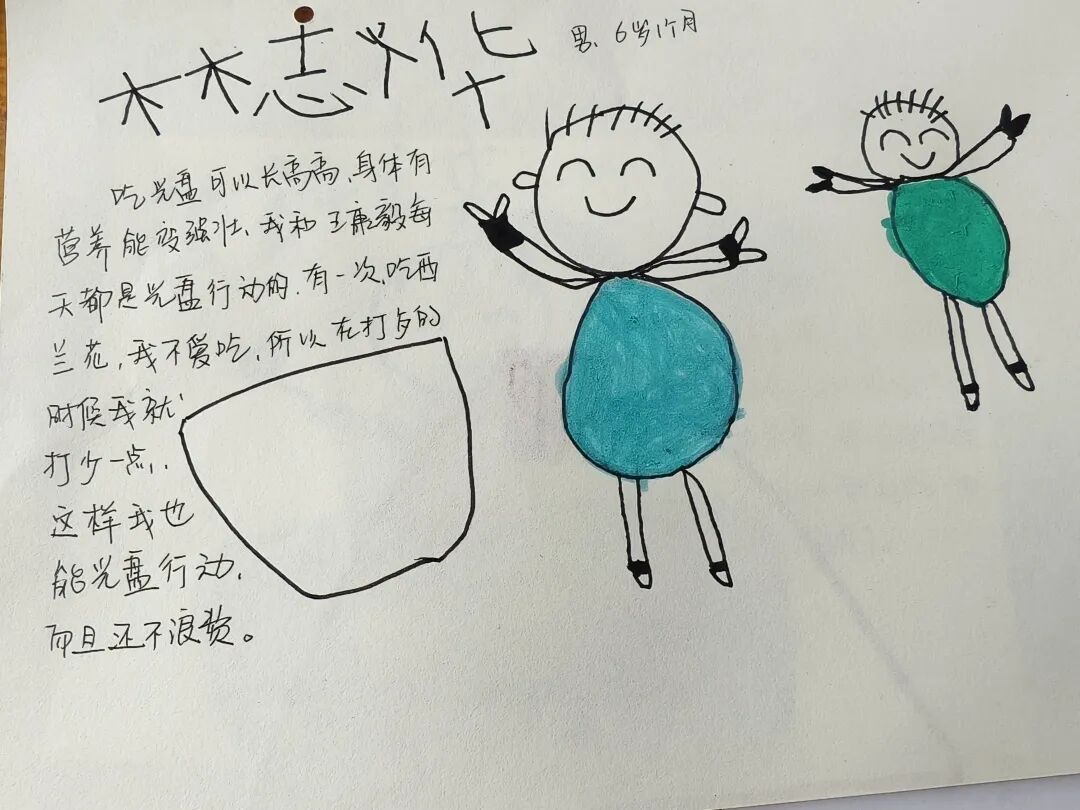 林志华
男、6岁1个月
吃光盘可以长高高、身体有
营养能变强壮、我和王康毅每
天都是光盘行动的、有一次、吃西
兰花、我不爱吃、所以在打点的
时候我就
打少一点、
这样我也
能光盘行动、
而且还不浪费。